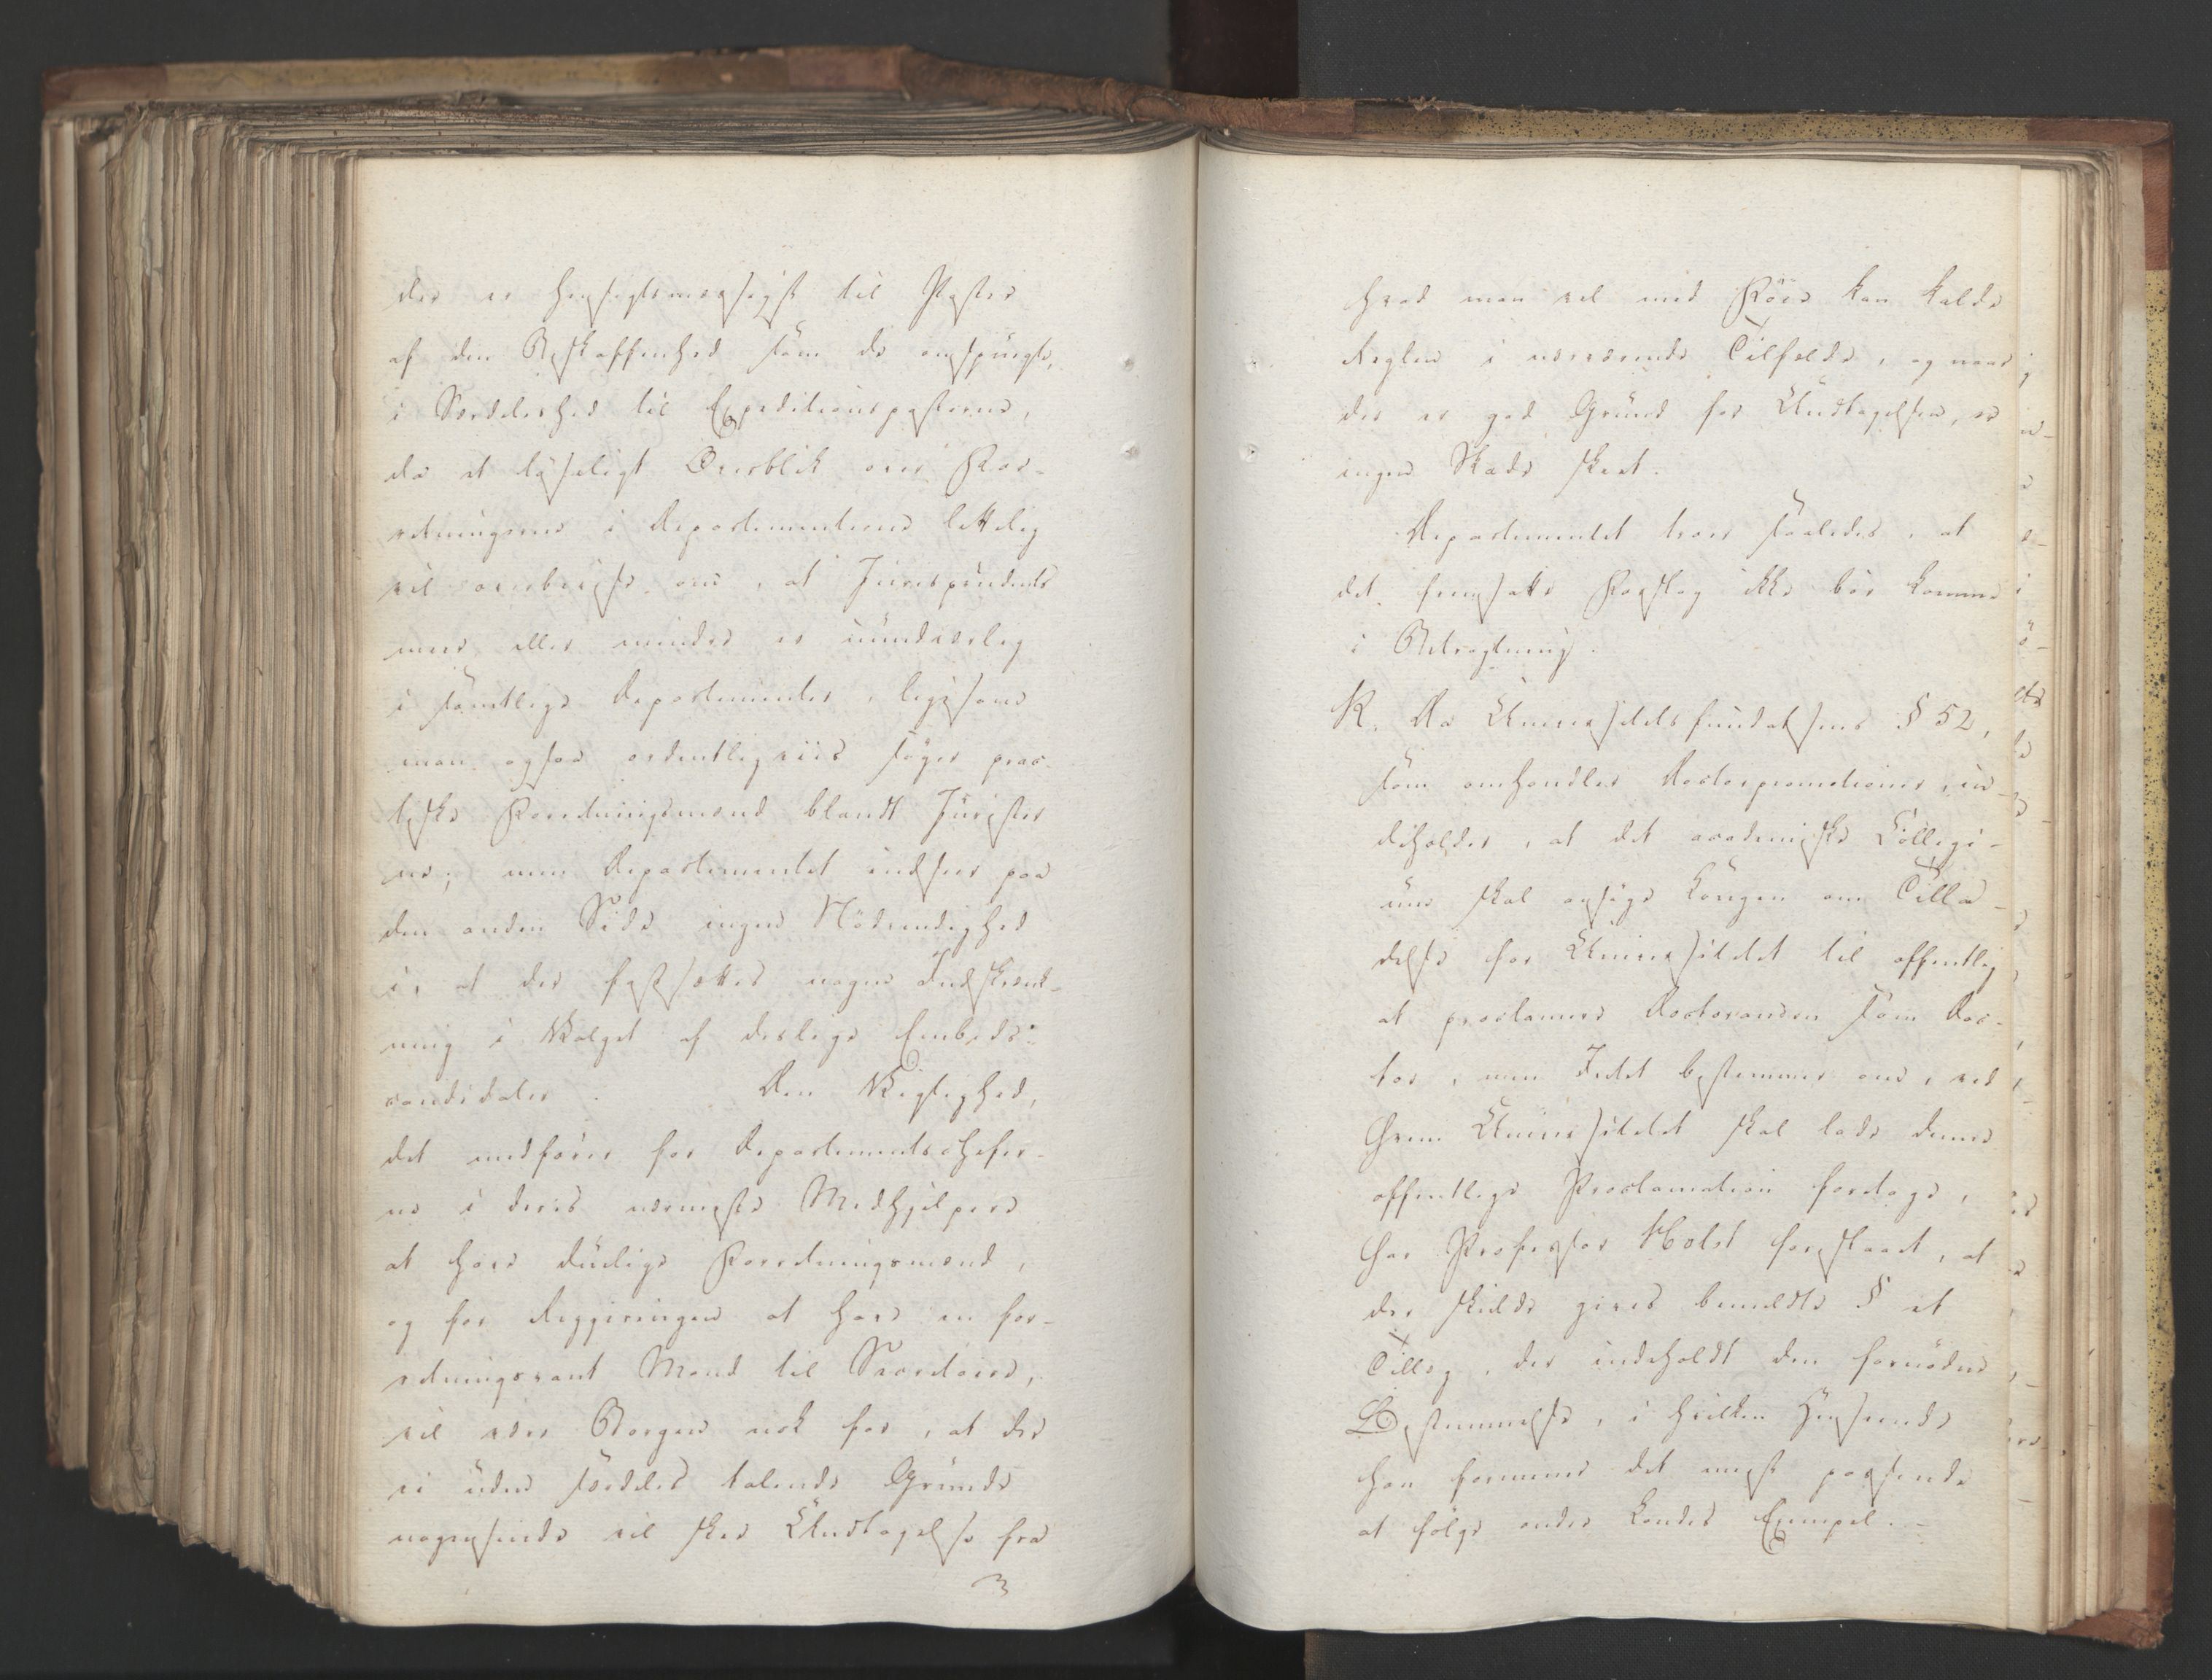 der er hensigtsmæssigst til Poster
af den Beskaffenhed som de omspurgte,
i Særdeleshed til Expeditionsposterne,
da et løseligt Overblik over For-
retningerne i Departementerne lettelig
vil overbevise om, at Jurisprudents
meer eller mindre er uundværlig
i samtlige Departementer, ligesom
man ogsaa ordentligviis søger prac-
tiske Forretningsmænd blandt Jurister
ne; men Departementet indseer paa
den anden Side ingen Nödvendighed
i, at der fastsættes nogen Indskrænk-
ning i Valget af deslige Embeds-
candidater. Den Vigtighed,
det medfører for Departementschefer-
ne i deres nærmeste Medhjelpere
at have duelige Forretningsmænd,
og for Regjeringen at have en for-
retningsvant Mand til Secretaire,
vil være Borgen nok for, at der
ei uden særdeles talende Grunde
nogensinde vil skee Undtagelse fra
3
hvad man vel med Föie kan kalde
Reglen i nærværende Tilfælde, og naar
der er god Grund for Undtagelsen, er
ingen Skade skeet.
Departementet troer saaledes, at
det fremsatte Forslag ikke bør komme
i Betragtning.
K. Da Universitetsfundatsens § 52,
som omhandler Doctorpromotioner, in-
deholder, at det academiske Collegi-
um skal ansøge Kongen om Tilla-
delse for Universitetet til offentlig
at proclamere Doctoranden som Doc-
tor, men Intet bestemmer om, ved
hvem Universitetet skal lade denne
offentlige Proclamation foretage,
har Professor Holst foreslaaet, at
der skulde gives bemeldte § et
Tillæg, der indeholdt den fornødne
Bestemmelse, i hvilken Henseende
han formener det meest passende
at følge andre Landes Exempel. -